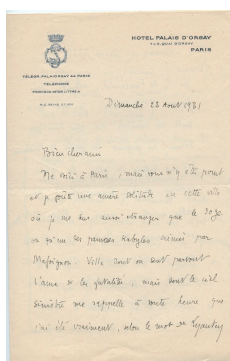 HOTEL PALAIS D'ORSAY
7 & 9, QUAI D'ORSAY
PARIS
TÉLÉGR. PALAIORSAY 44 PARIS
TÉLÉPHONE
Dimanche 23 Août 1931
Bien cher ami
Me voici à Paris, mais vous n'y êtes point
et je goûte une amère solitude en cette ville
où je me sens aussi étranger que le
qu'un de ces pauvres Kabyles aimés par
Massignon. Ville dont on sent partout
l'âme et les qualités, mais dont le ciel
sinistre me rappelle à toute heure que
j'ai été vraiment, selon le mot de Lyautey